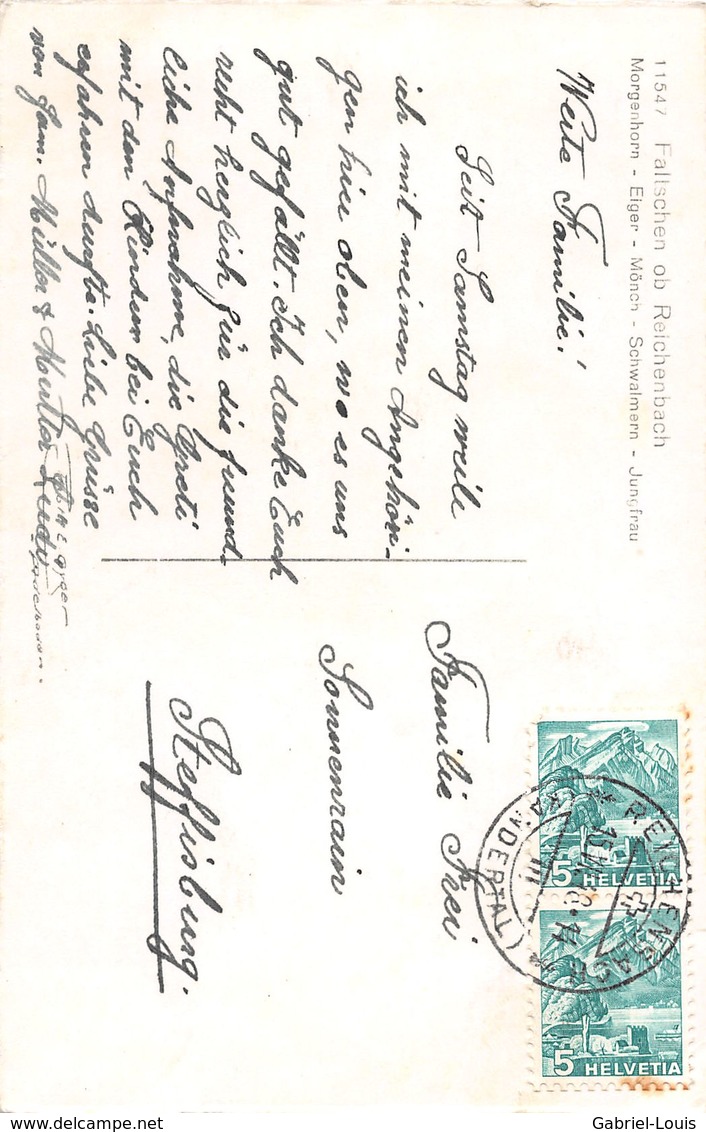 11547 Faltschen ob Reichenbach
Morgenhorn - Eiger - Mönch - Schwalmern - Jungfrau
Werte Familie!
Seit Samstag weile
ich mit meinen Angehöri-
gen hier oben, wo es uns
gut gefällt. Ich danke Euch
recht herzlich für die freund-
liche Aufnahme, die Greti
mit den Kindern bei Euch
erfahren durfte. Liebe Grüsse
von Fam. Müller & Mutter
Familie Frei
Sonnenrain
Steffisburg.
REICHENBACH
(KANDERTAL)
III
5 HELVETIA
5 HELVETIA
Gabriel-Louis